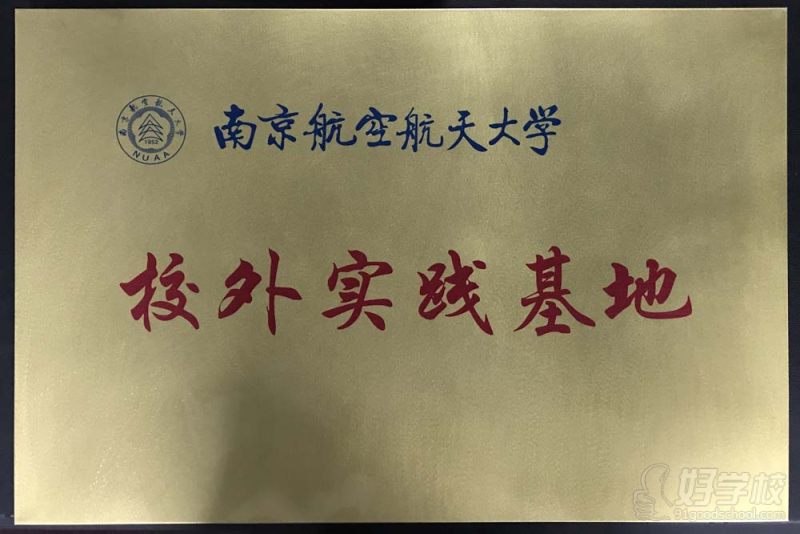 南京航空航天大学
1952
NUAA
南京航空航天大学
校外实践基地
好学校
91goodschool.com